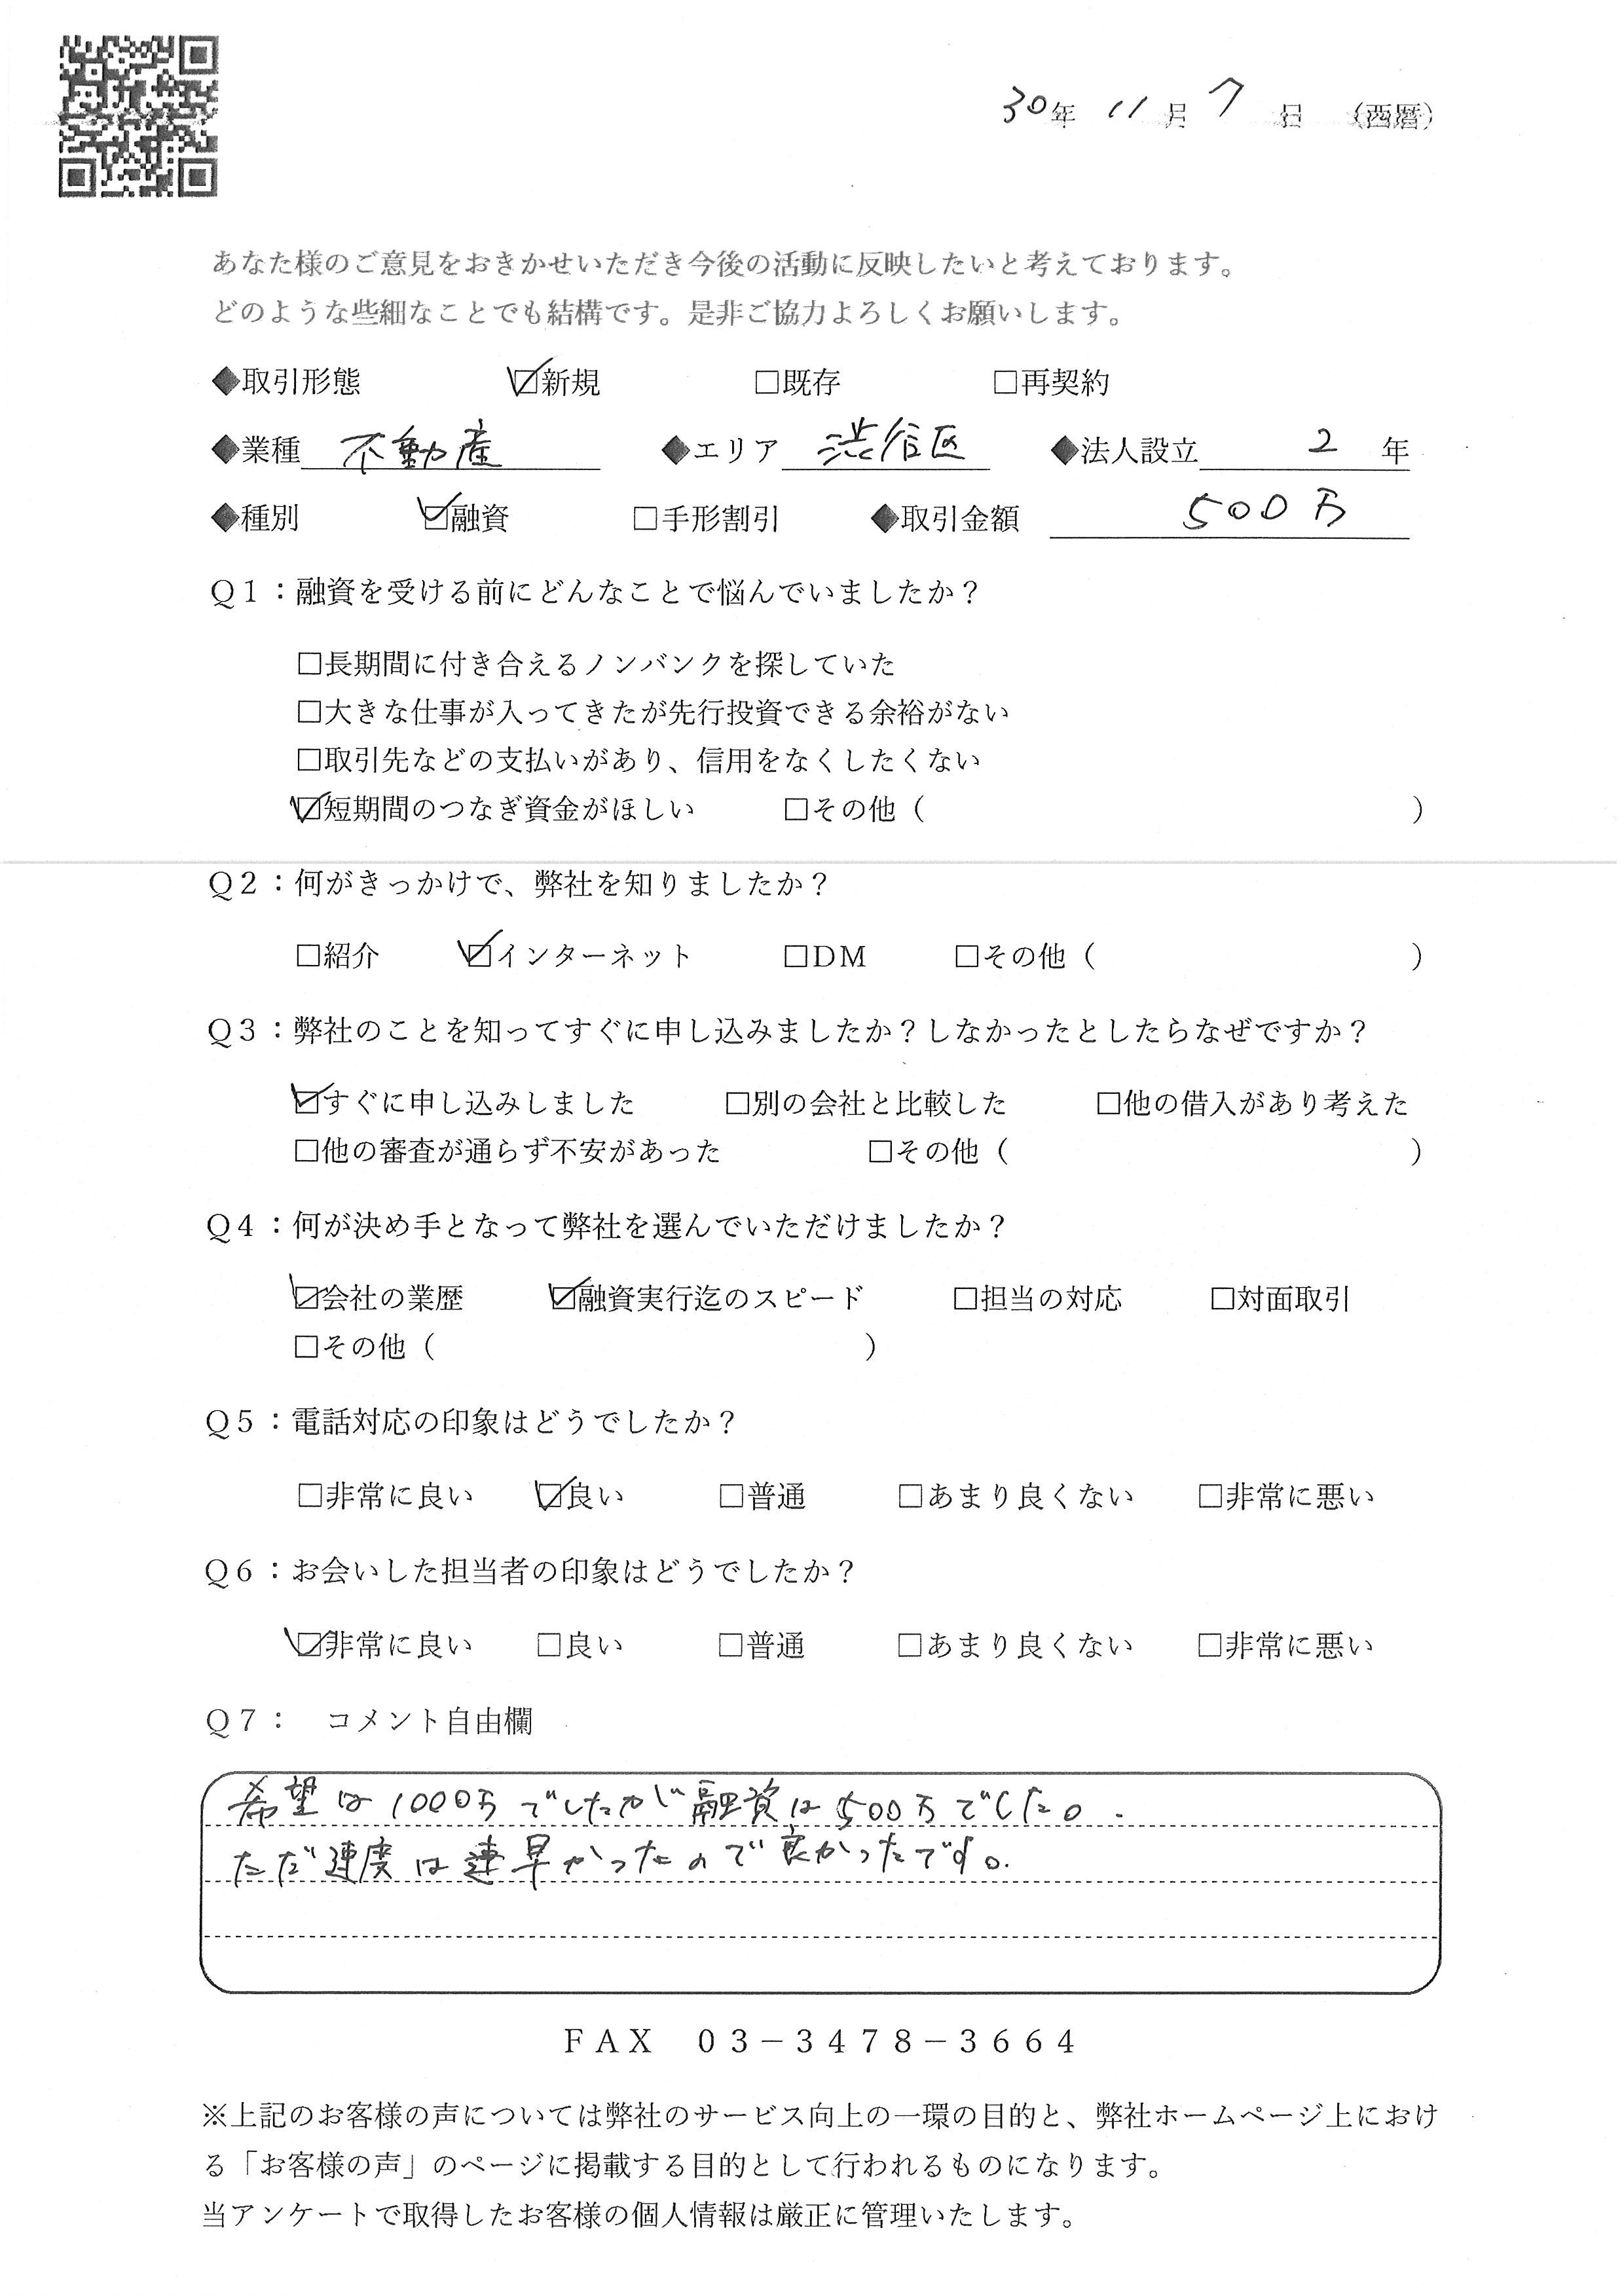 30年 11月 7日 (西暦)
あなた様のご意見をおきかせいただき今後の活動に反映したいと考えております。
どのような些細なことでも結構です。是非ご協力よろしくお願いします。
◆取引形態 ☑新規 □既存 □再契約
◆業種 不動産 ◆エリア 渋谷区 ◆法人設立 2 年
◆種別 ☑融資 □手形割引 ◆取引金額 500万
Q1：融資を受ける前にどんなことで悩んでいましたか？
□長期間に付き合えるノンバンクを探していた
□大きな仕事が入ってきたが先行投資できる余裕がない
□取引先などの支払いがあり、信用をなくしたくない
☑短期間のつなぎ資金がほしい □その他（ ）
Q2：何がきっかけで、弊社を知りましたか？
□紹介 ☑インターネット □DM □その他（ ）
Q3：弊社のことを知ってすぐに申し込みましたか？しなかったとしたらなぜですか？
☑すぐに申し込みしました □別の会社と比較した □他の借入があり考えた
□他の審査が通らず不安があった □その他（ ）
Q4：何が決め手となって弊社を選んでいただけましたか？
☑会社の業歴 ☑融資実行迄のスピード □担当の対応 □対面取引
□その他（ ）
Q5：電話対応の印象はどうでしたか？
□非常に良い ☑良い □普通 □あまり良くない □非常に悪い
Q6：お会いした担当者の印象はどうでしたか？
☑非常に良い □良い □普通 □あまり良くない □非常に悪い
Q7： コメント自由欄
希望は1000万でしたが融資は500万でした。
ただ速度は速早かったので良かったです。
FAX 03－3478－3664
※上記のお客様の声については弊社のサービス向上の一環の目的と、弊社ホームページ上におけ
る「お客様の声」のページに掲載する目的として行われるものになります。
当アンケートで取得したお客様の個人情報は厳正に管理いたします。